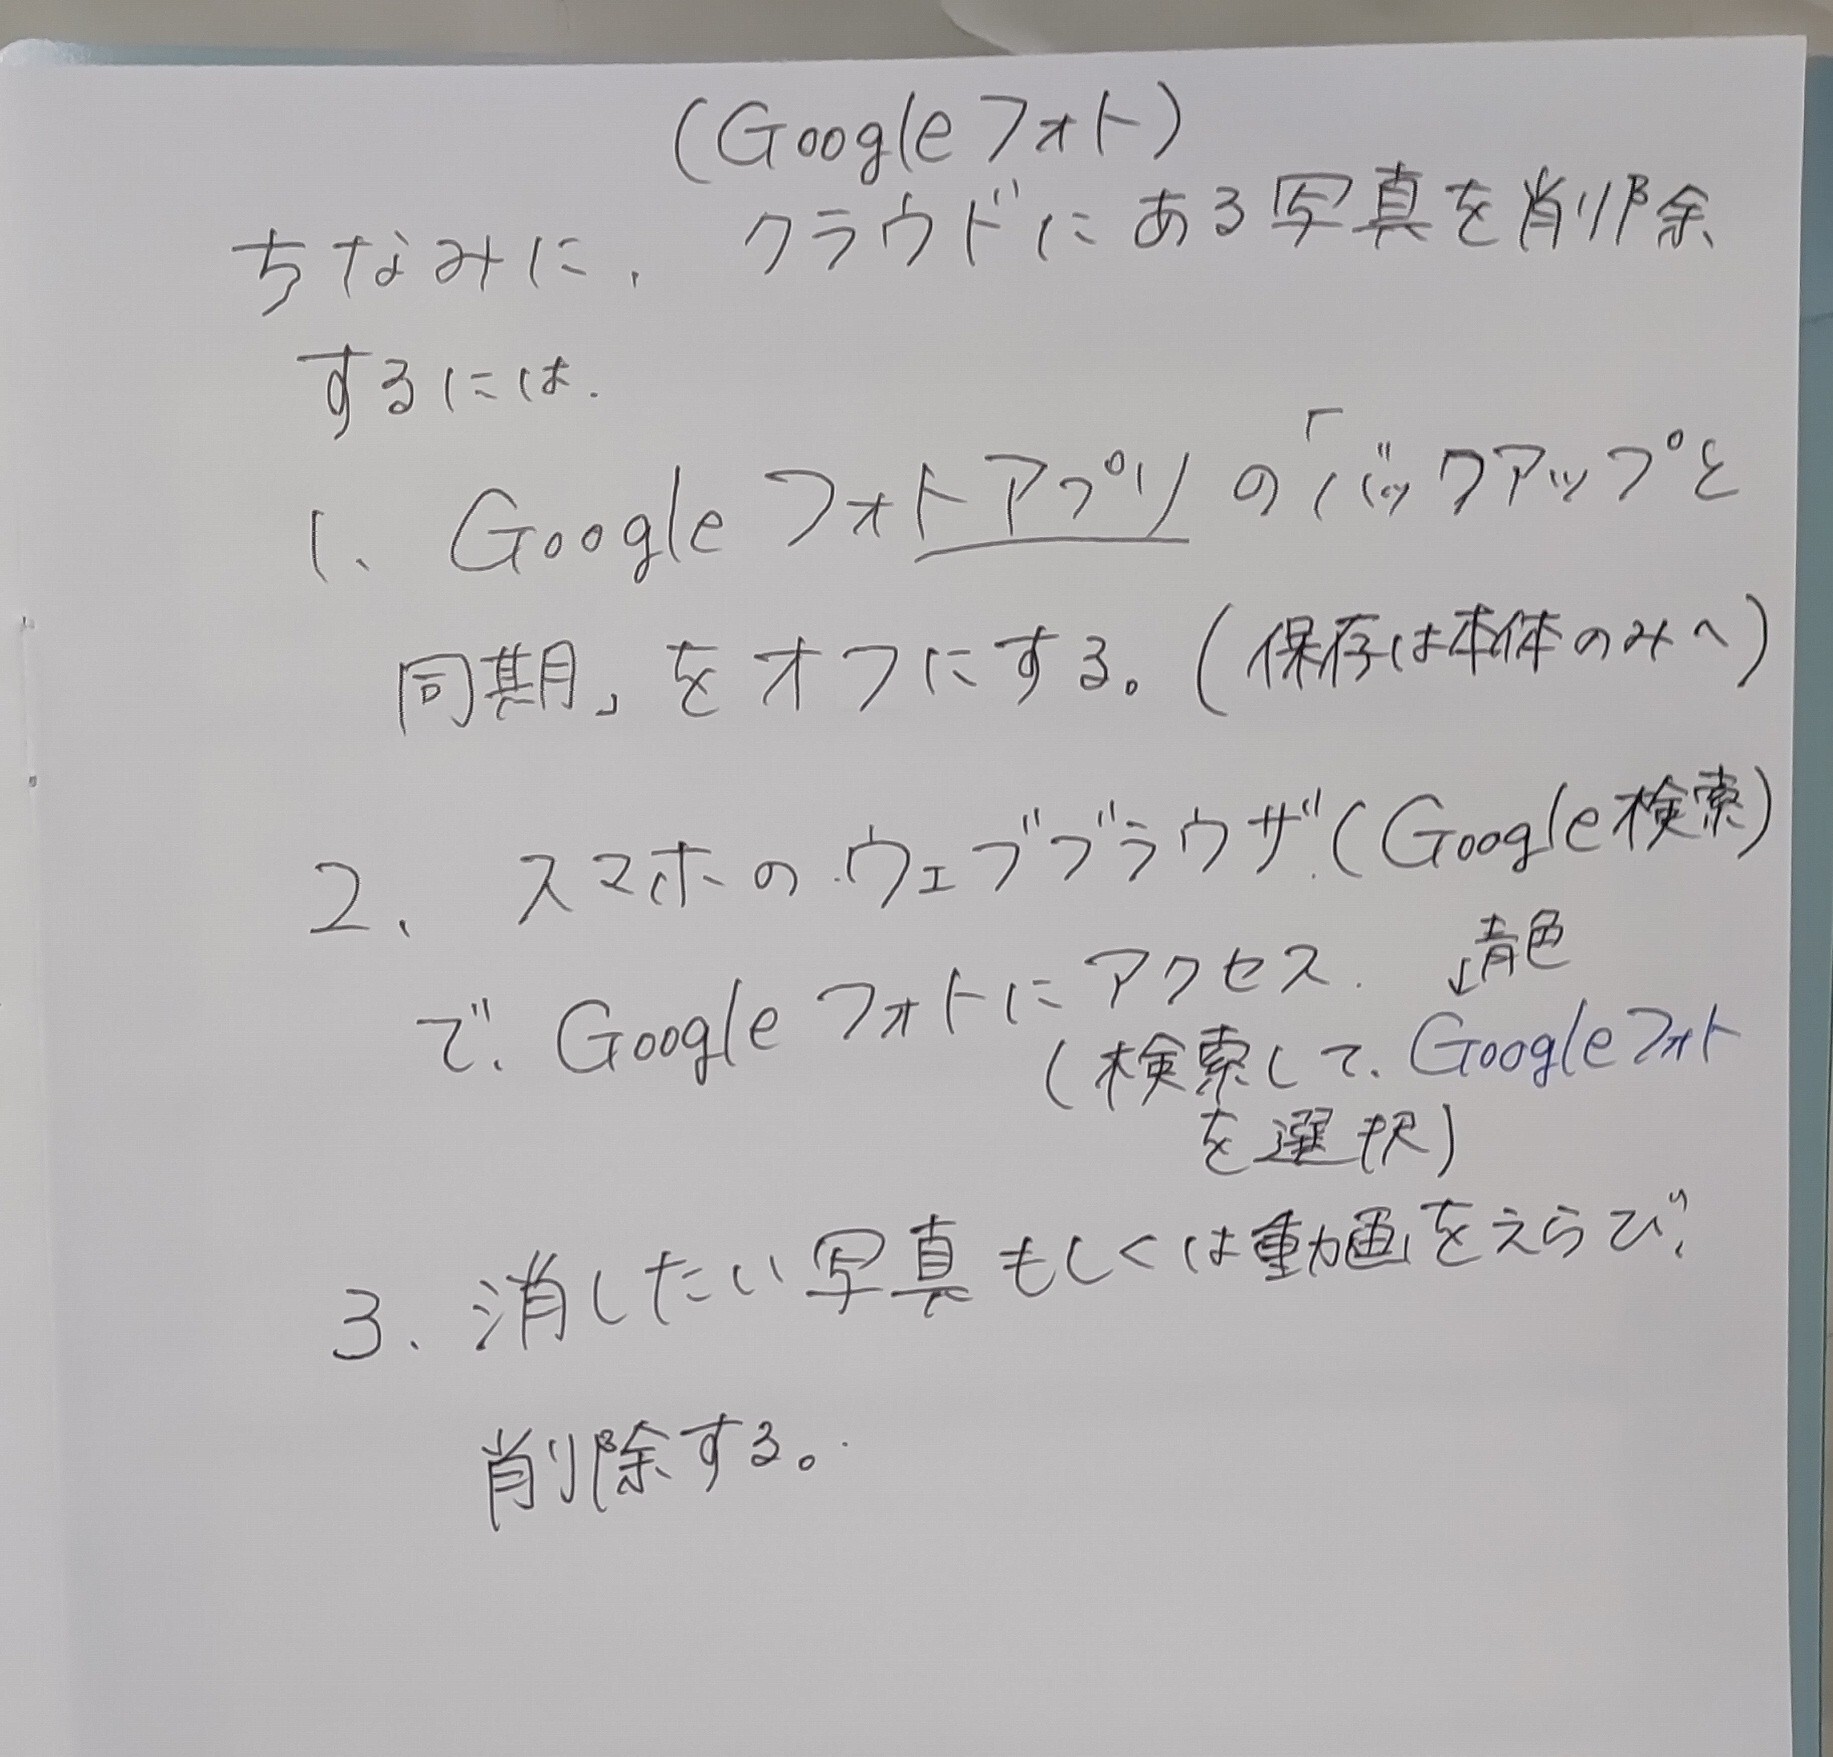 (Googleフォト)
ちなみに、クラウドにある写真を削除
するには、
1、Googleフォトアプリの「バックアップと
同期」をオフにする。(保存は本体のみへ)
2、スマホのウェブブラウザ(Google検索)
で、Googleフォトにアクセス
↓青色
(検索して、Googleフォト
を選択)
3、消したい写真もしくは動画をえらび、
削除する。